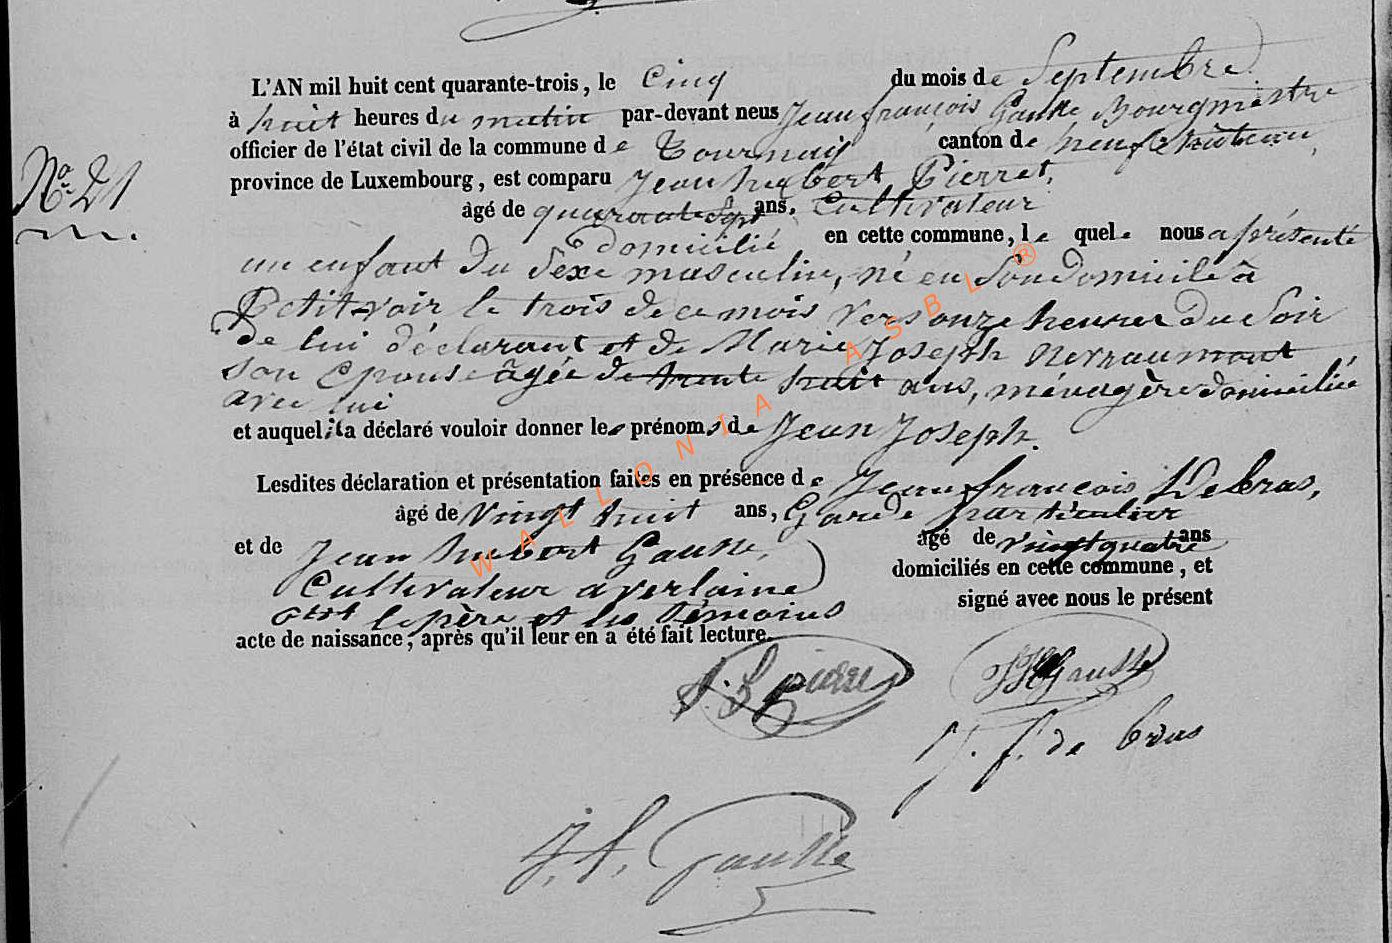 L'AN mil huit cent quarante-trois, le Cinq du mois de Septembre
à huit heures du matin par-devant nous Jean françois Gausse Bourgmestre
officier de l'état civil de la commune de Tournay canton de neufchateau,
province de Luxembourg, est comparu Jean hubert Pierret,
âgé de quarante Sept ans, Cultivateur
domicilié en cette commune, le quel nous a présenté
N° 21
un enfant du Sexe masculin, né en Son domicile à
Petitvoir le trois de ce mois vers onze heures du Soir
de lui déclarant et de Marie Joseph Nerraumont
Son Epouse âgée de trente huit ans, ménagère domiciliée
avec lui
et auquel il a déclaré vouloir donner les prénoms de Jean Joseph.
Lesdites déclaration et présentation faites en présence de Jean françois Debras,
âgé de vingt huit ans, Garde particulier
et de Jean hubert Gausse, âgé de vingt quatre ans
Cultivateur a verlaine domiciliés en cette commune, et
ont le père et les témoins signé avec nous le présent
acte de naissance, après qu'il leur en a été fait lecture.
J. H. Gausse
J. f. de bras
J. f. Gausse
WALLONIA ASBL ®